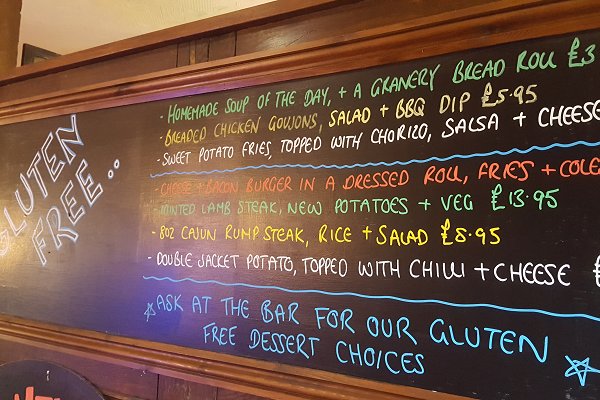 GLUTEN
FREE..
- HOMEMADE SOUP OF THE DAY, + A GRANERY BREAD ROLL £3
- BREADED CHICKEN GOUJONS, SALAD + BBQ DIP £5.95
- SWEET POTATO FRIES, TOPPED WITH CHORIZO, SALSA + CHEESE
- CHEESE + BACON BURGER IN A DRESSED ROLL, FRIES + COLE
- MINTED LAMB STEAK, NEW POTATOES + VEG £13.95
- 8OZ CAJUN RUMP STEAK, RICE + SALAD £8.95
- DOUBLE JACKET POTATO, TOPPED WITH CHILLI + CHEESE £
☆ ASK AT THE BAR FOR OUR GLUTEN
FREE DESSERT CHOICES ☆